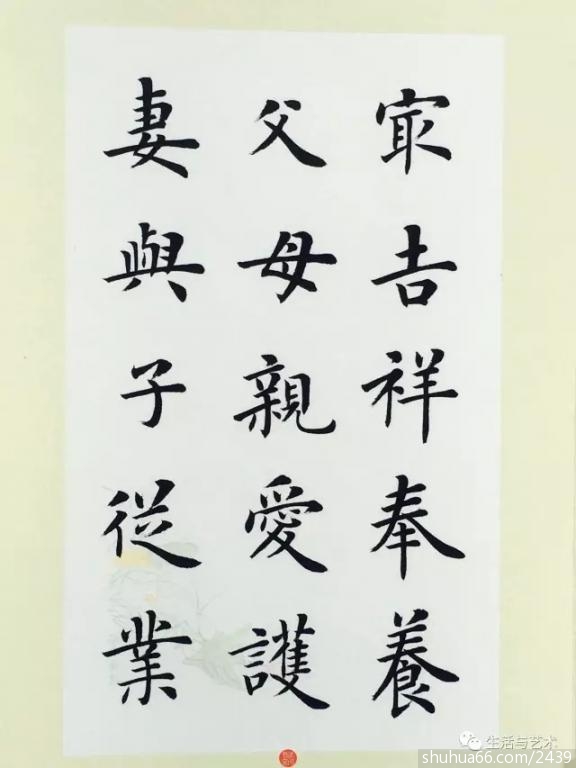 冣吉祥奉養
父母親愛護
妻與子從業
生活与艺术
shuhua66.com/2439